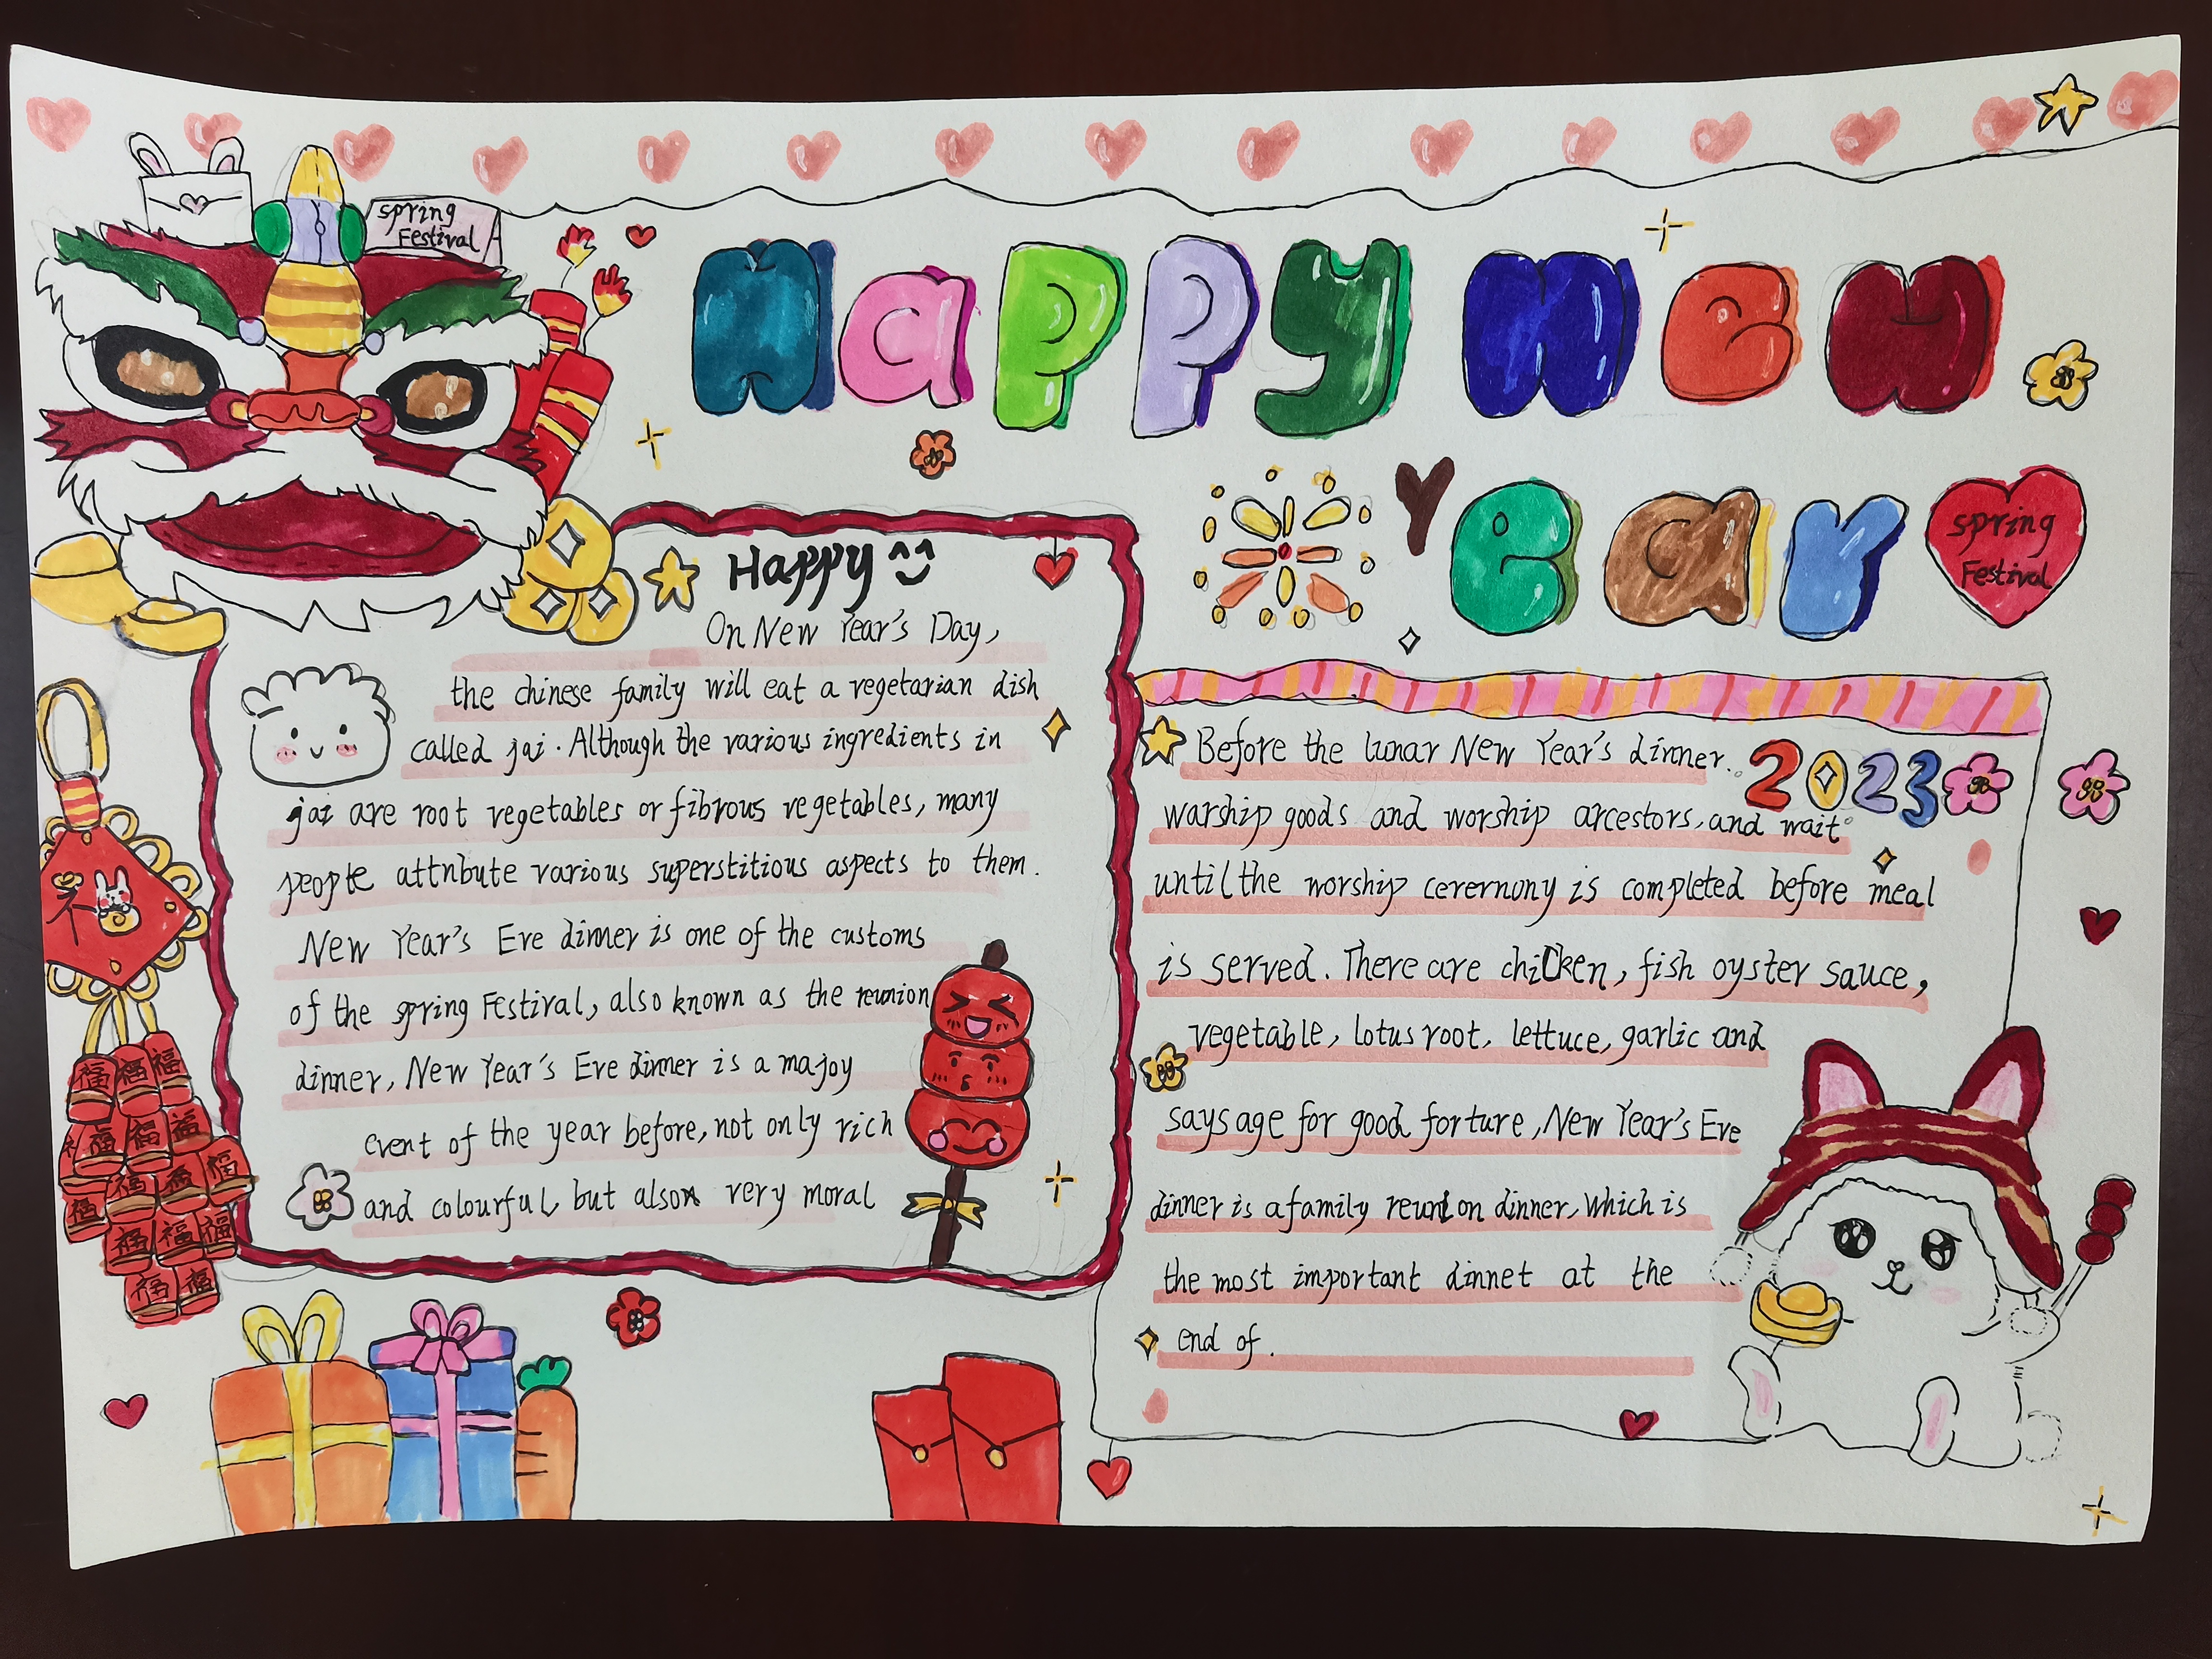 spring
Festival
Happy New
Year
spring
Festival
Happy
On New Year's Day,
the chinese family will eat a vegetarian dish
called jai. Although the various ingredients in
jai are root vegetables or fibrous vegetables, many
people attribute various superstitious aspects to them.
New Year's Eve dinner is one of the customs
of the spring Festival, also known as the reunion
dinner, New Year's Eve dinner is a majoy
event of the year before, not only rich
and colourful, but also very moral
2023
Before the lunar New Year's dinner.
warship goods and worship arcestors, and wait
until the worship cerernony is completed before meal
is served. There are chicken, fish oyster sauce,
vegetable, lotus root, lettuce, garlic and
says age for good forture, New Year's Eve
dinner is a family reunion dinner, Which is
the most important dinnet at the
end of.
福 福 福
福 福 福
福 福 福
福 福 福
福 福 福
福 福